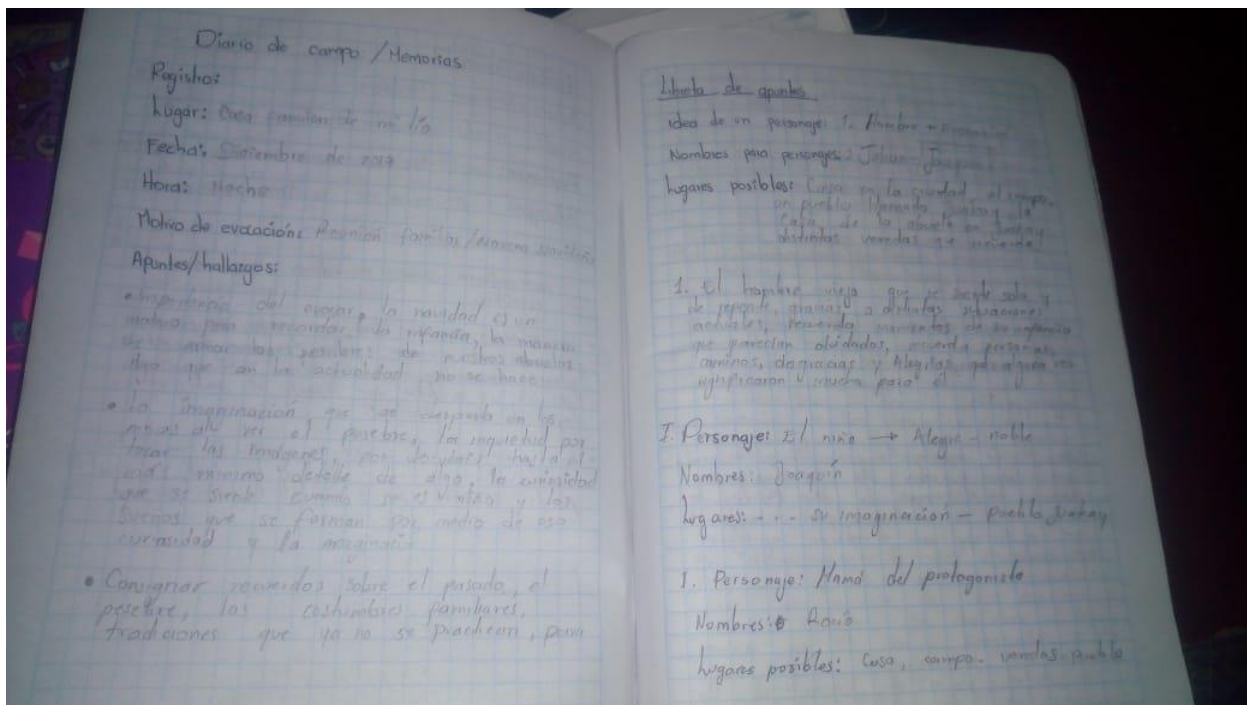 Diario de campo / Memorias
Registro:
Lugar: Casa familiar de mi tío
Fecha: Diciembre de 2019
Hora: Noche
Motivo de evocación: Reunión familiar /
Apuntes/hallazgos:
del , la navidad es un
motivo para recordar la infancia, la manera
de armar los pesebres de nuestros abuelos
algo que en la actualidad no se hace.
• La imaginación que se despierta en los
al ver el pesebre, la inquietud por
tocar las imágenes, por hasta el
más mínimo detalle de algo, la curiosidad
que se siente cuando se es niño y los
sueños que se forman por medio de esa
curiosidad y la imaginación
• Consignar recuerdos sobre el pasado, el
pesebre, las costumbres familiares,
tradiciones que ya no se practican, para
Libreta de apuntes
idea de un personaje: 1. Hombre
Nombres para personajes: Joaquín
Lugares posibles: Casa en la ciudad, el campo,
un pueblo llamado la
Casa de la abuela en
distintas veredas que recuerda
1. El hombre viejo que se siente solo y
de repente, gracias a distintas situaciones
actuales, recuerda momentos de su infancia
que parecían olvidados, recuerda personas,
caminos, desgracias y Alegrías, que alguna vez
significaron mucho para él
I. Personaje: El niño → Alegre - noble
Nombres: Joaquín
Lugares: - - - su imaginación - pueblo
1. Personaje: Mamá del protagonista
Nombres:
Lugares posibles: Casa, campo, pueblo